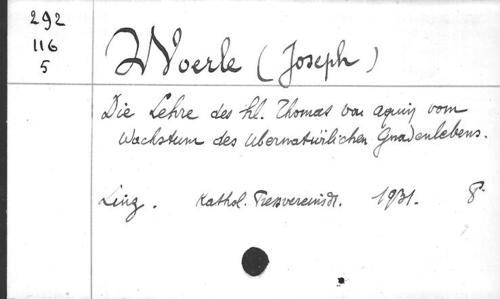 292
116
5
Woerle (Joseph)
Die Lehre des hl. Thomas von Aquin vom
Wachstum des übernatürlichen Gnadenlebens.
Linz. Kathol. Pressvereinsdr. 1931. 8°